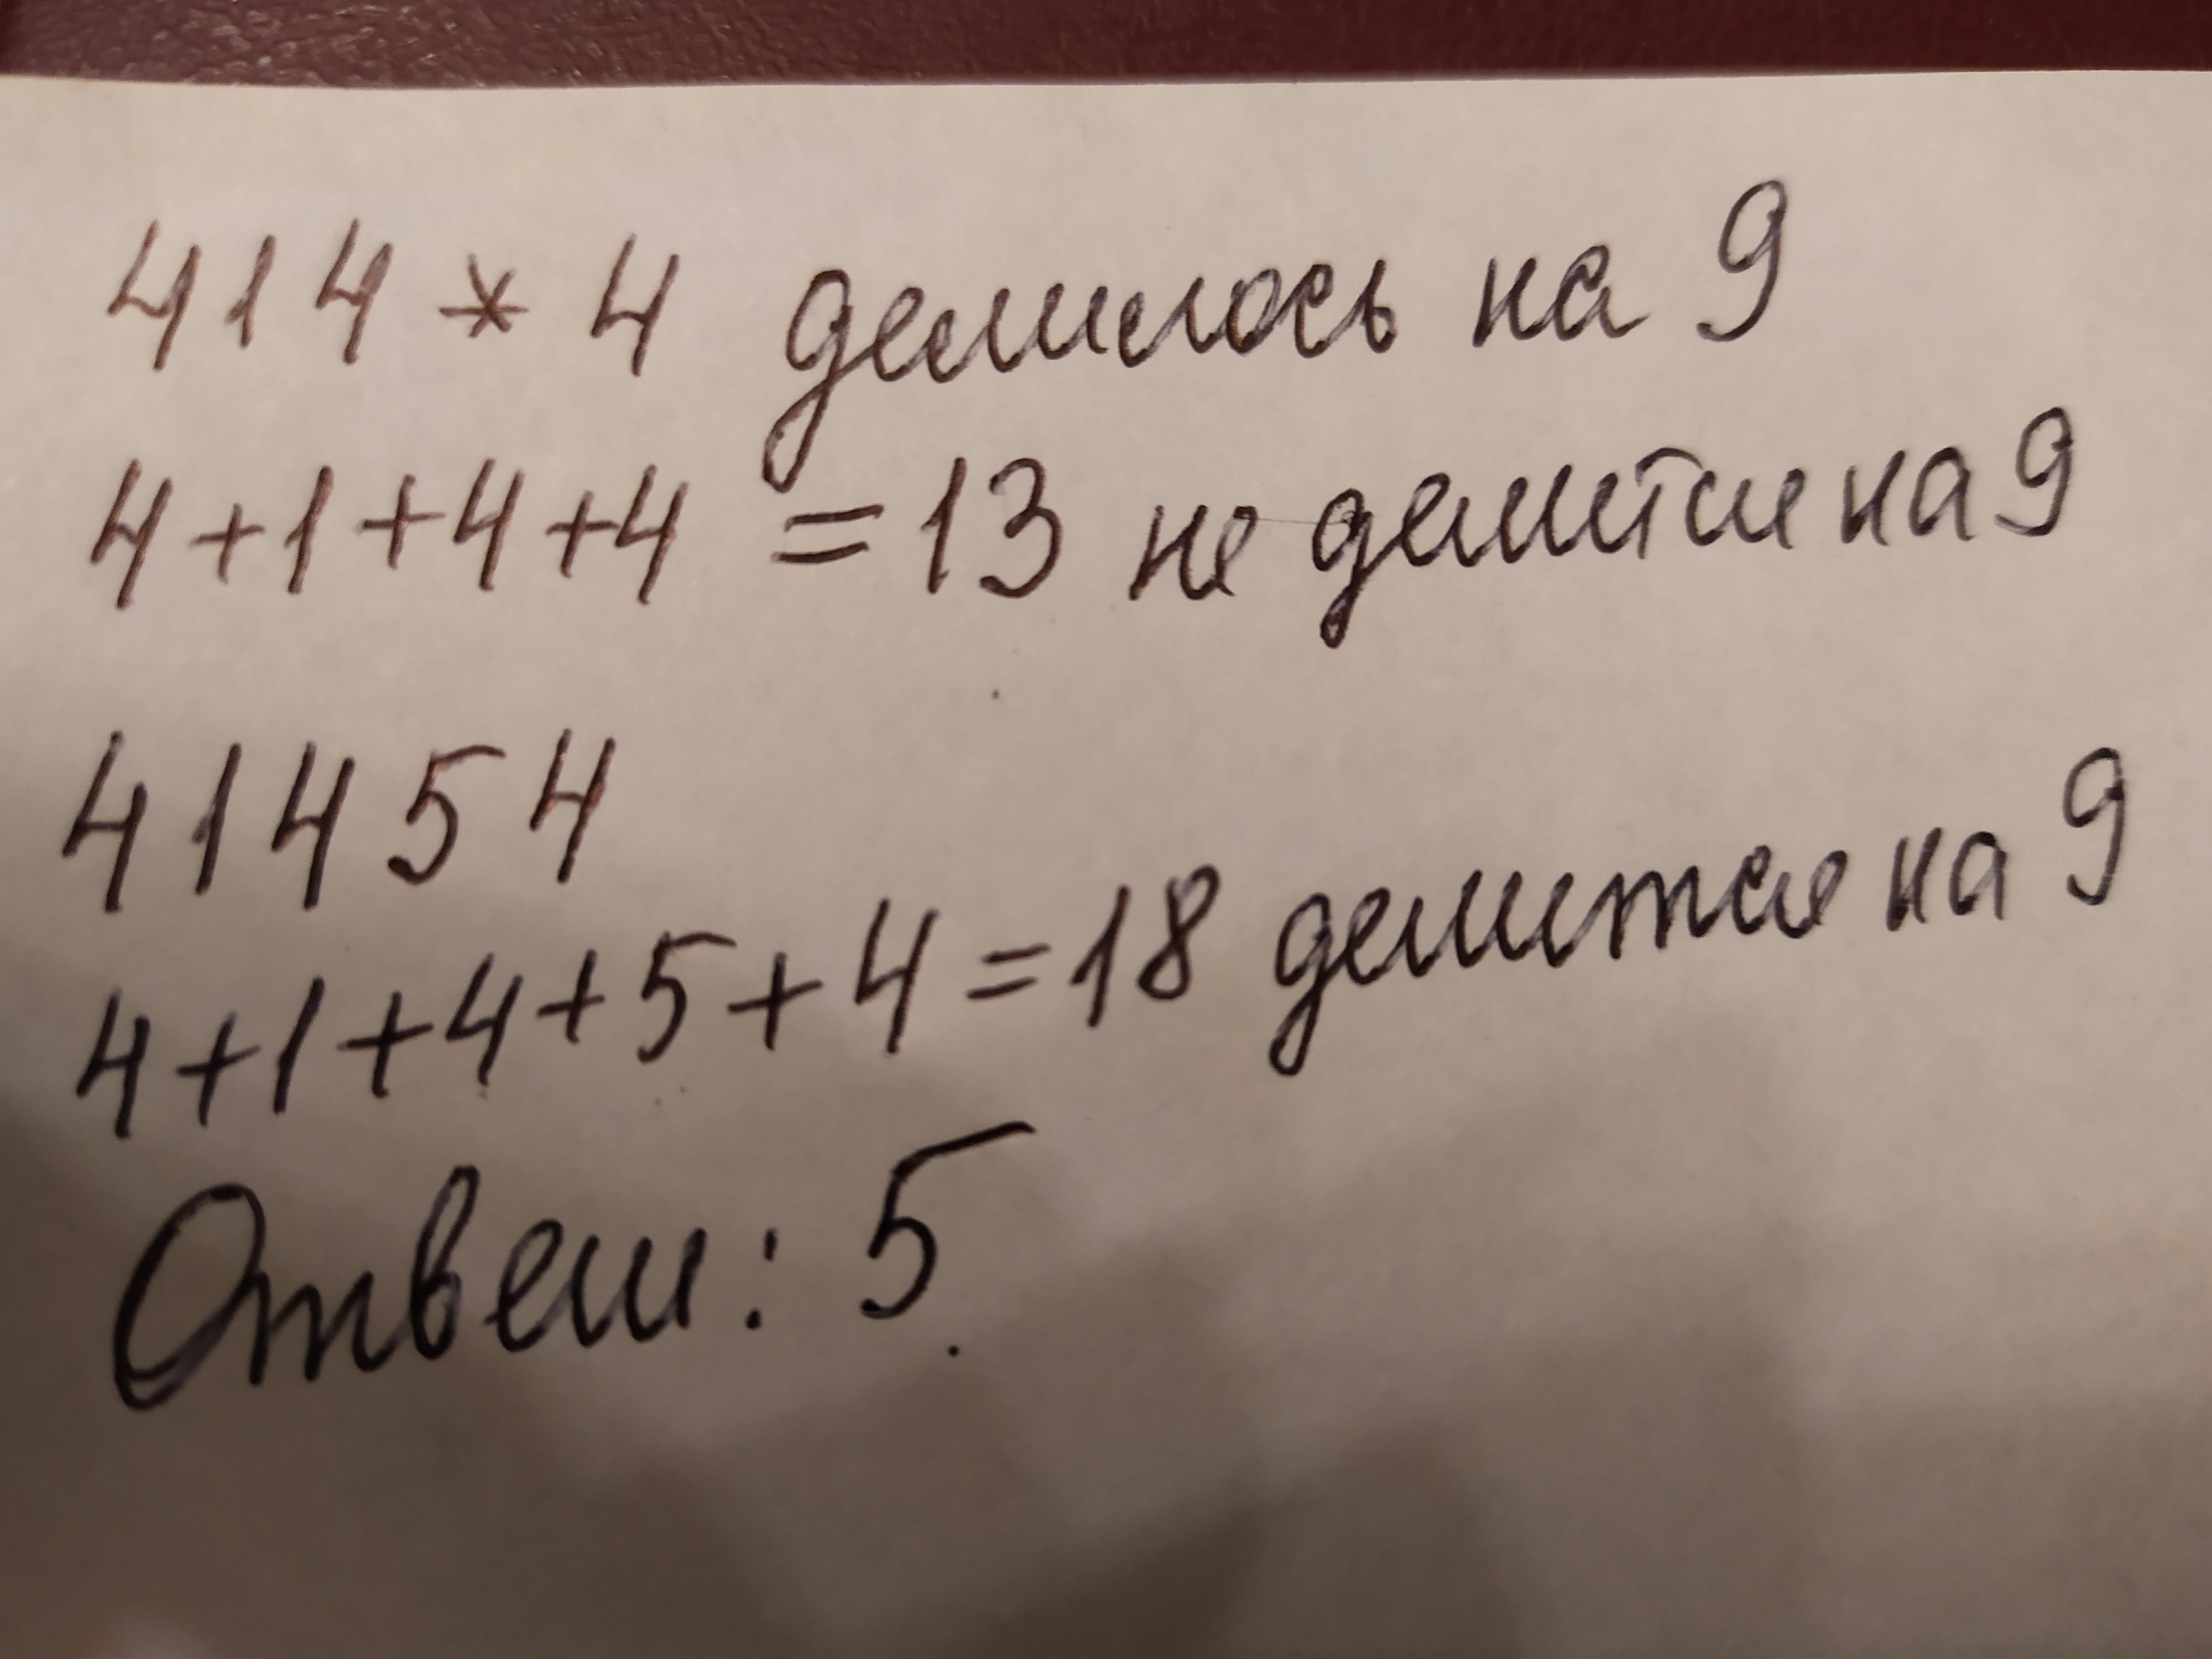 414*4 делилось на 9
4+1+4+4 =13 не делится на 9
41454
4+1+4+5+4=18 делится на 9
Ответ: 5.